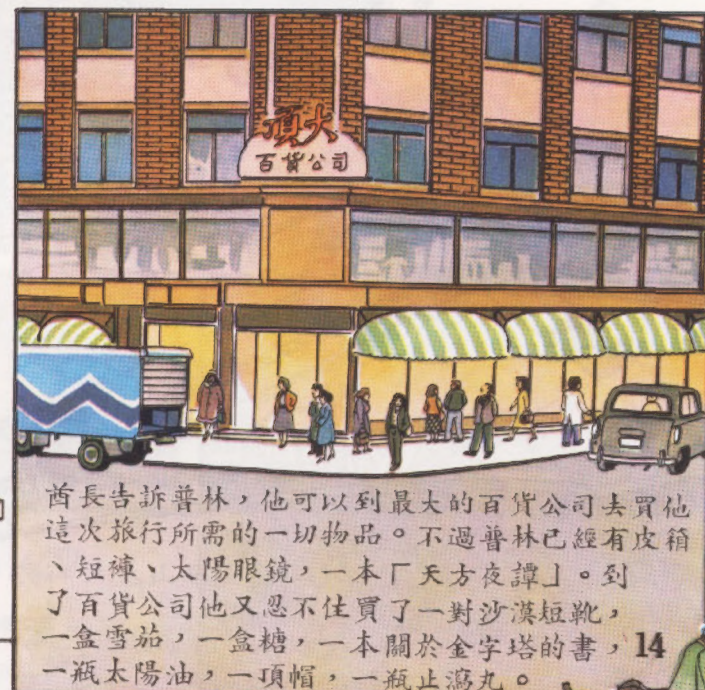 頂大
百貨公司
酋長告訴普林，他可以到最大的百貨公司去買他
這次旅行所需的一切物品。不過普林已經有皮箱
、短褲、太陽眼鏡，一本「天方夜譚」。到
了百貨公司他又忍不住買了一對沙漠短靴，
一盒雪茄，一盒糖，一本關於金字塔的書，
一瓶太陽油，一頂帽，一瓶止瀉丸。
14